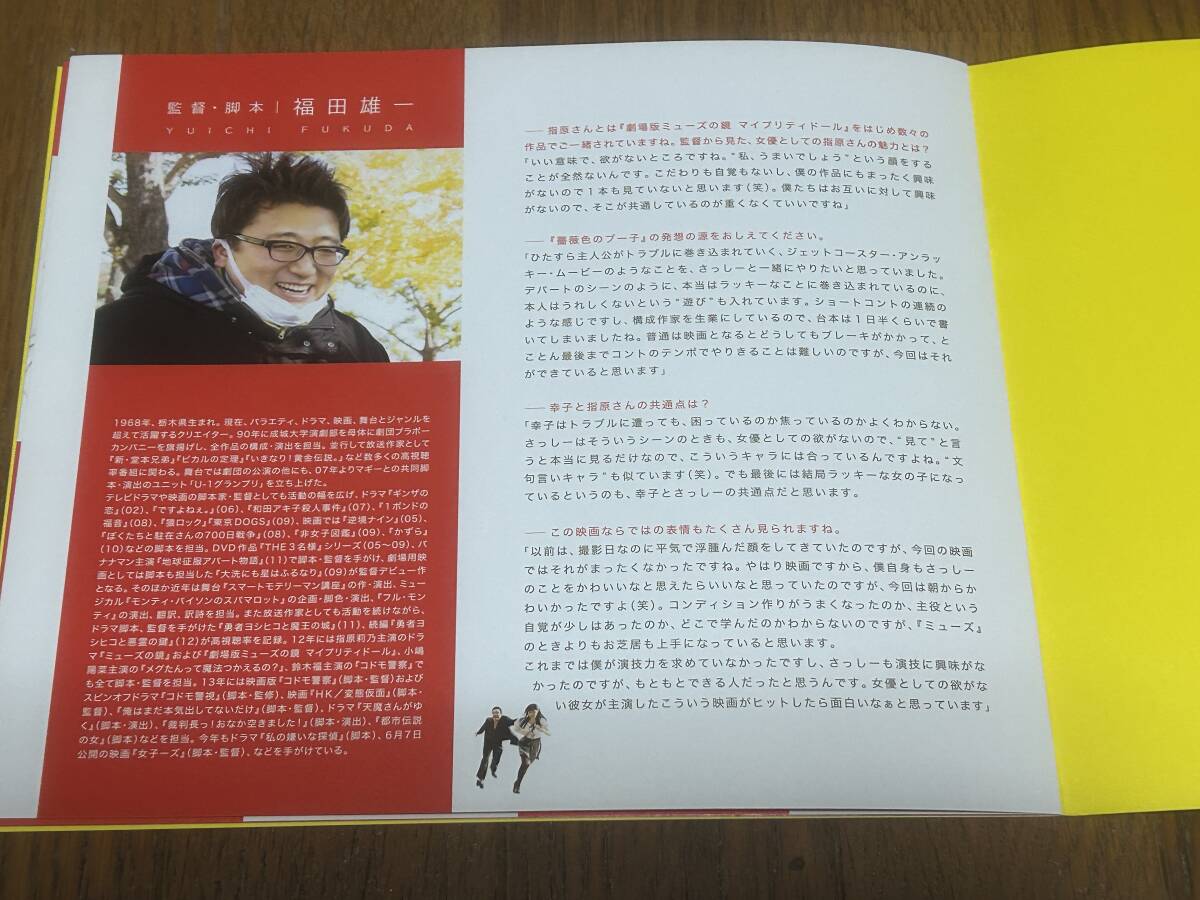 監督・脚本｜福田雄一
YUICHI FUKUDA
1968年、栃木県生まれ。現在、バラエティ、ドラマ、映画、舞台とジャンルを
超えて活躍するクリエイター。90年に成城大学演劇部を母体に劇団ブラボー
カンパニーを旗揚げし、全作品の構成・演出を担当。並行して放送作家として
『新・堂本兄弟』『ピカルの定理』『いきなり!黄金伝説。』など数多くの高視聴
率番組に関わる。舞台では劇団の公演の他にも、07年よりマギーとの共同脚
本・演出のユニット「U-1グランプリ」を立ち上げた。
テレビドラマや映画の脚本家・監督としても活動の幅を広げ、ドラマ『ギンザの
恋』(02)、『ですよねぇ。』(06)、『和田アキ子殺人事件』(07)、『1ポンドの
福音』(08)、『猿ロック』『東京DOGS』(09)、映画では『逆境ナイン』(05)、
『ぼくたちと駐在さんの700日戦争』(08)、『非女子図鑑』(09)、『かずら』
(10)などの脚本を担当。DVD作品『THE3名様』シリーズ(05〜09)、バ
ナナマン主演『地球征服アパート物語』(11)で脚本・監督を手がけ、劇場用映
画としては脚本も担当した『大洗にも星はふるなり』(09)が監督デビュー作
となる。そのほか近年は舞台『スマートモテリーマン講座』の作・演出、ミュー
ジカル『モンティ・パイソンのスパマロット』の企画・脚色・演出、『フル・モン
ティ』の演出、翻訳、訳詩を担当。また放送作家としても活動を続けながら、
ドラマ脚本、監督を手がけた『勇者ヨシヒコと魔王の城』(11)、続編『勇者ヨ
シヒコと悪霊の鍵』(12)が高視聴率を記録。12年には指原莉乃主演のドラ
マ『ミューズの鏡』および『劇場版ミューズの鏡 マイプリティドール』、小嶋
陽菜主演の『メグたんって魔法つかえるの?』、鈴木福主演の『コドモ警察』で
も全て脚本・監督を担当。13年には映画版『コドモ警察』(脚本・監督)および
スピンオフドラマ『コドモ警視』(脚本・監修)、映画『HK/変態仮面』(脚本・
監督)、『俺はまだ本気出してないだけ』(脚本・監督)、ドラマ『天魔さんがゆ
く』(脚本・演出)、『裁判長っ!おなか空きました!』(脚本・演出)、『都市伝説
の女』(脚本)などを担当。今年もドラマ『私の嫌いな探偵』(脚本)、6月7日
公開の映画『女子ーズ』(脚本・監督)、などを手がけている。
――指原さんとは『劇場版ミューズの鏡 マイプリティドール』をはじめ数々の
作品でご一緒されていますね。監督から見た、女優としての指原さんの魅力とは?
「いい意味で、欲がないところですね。“私、うまいでしょう”という顔をする
ことが全然ないんです。こだわりも自覚もないし、僕の作品にもまったく興味
がないので1本も見ていないと思います(笑)。僕たちはお互いに対して興味
がないので、そこが共通しているのが重くなくていいですね」
――『薔薇色のブー子』の発想の源をおしえてください。
「ひたすら主人公がトラブルに巻き込まれていく、ジェットコースター・アンラッ
キー・ムービーのようなことを、さっしーと一緒にやりたいと思っていました。
デパートのシーンのように、本当はラッキーなことに巻き込まれているのに、
本人はうれしくないという“遊び”も入れています。ショートコントの連続の
ような感じですし、構成作家を生業にしているので、台本は1日半くらいで書
いてしまいましたね。普通は映画となるとどうしてもブレーキがかかって、と
ことん最後までコントのテンポでやりきることは難しいのですが、今回はそれ
ができていると思います」
――幸子と指原さんの共通点は?
「幸子はトラブルに遭っても、困っているのか焦っているのかよくわからない。
さっしーはそういうシーンのときも、女優としての欲がないので、“見て”と言
うと本当に見るだけなので、こういうキャラには合っているんですよね。“文
句言いキャラ”も似ています(笑)。でも最後には結局ラッキーな女の子にな
っているというのも、幸子とさっしーの共通点だと思います。
――この映画ならではの表情もたくさん見られますね。
「以前は、撮影日なのに平気で浮腫んだ顔をしてきていたのですが、今回の映画
ではそれがまったくなかったですね。やはり映画ですから、僕自身もさっしー
のことをかわいいなと思えたらいいなと思っていたのですが、今回は朝からか
わいかったですよ(笑)。コンディション作りがうまくなったのか、主役という
自覚が少しはあったのか、どこで学んだのかわからないのですが、『ミューズ』
のときよりもお芝居も上手になっていると思います。
これまでは僕が演技力を求めていなかったですし、さっしーも演技に興味がな
かったのですが、もともとできる人だったと思うんです。女優としての欲がな
い彼女が主演したこういう映画がヒットしたら面白いなぁと思っています」